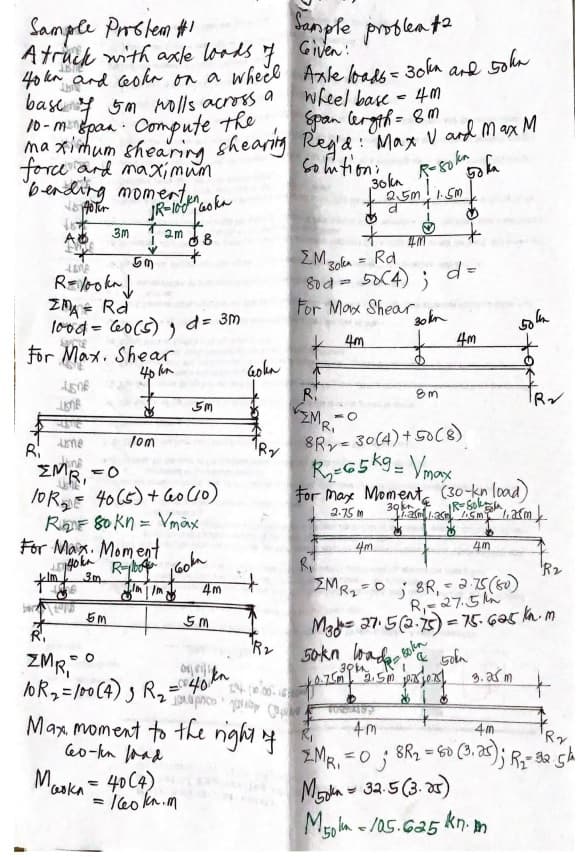 Sample Problem #1
A truck with axle loads of
40 kn and 60kn on a wheel
base of 5m rolls across a
10-m span. Compute the
maximum shearing shearing
force and maximum
bending moment.
40kn R=100kn 60kn
3m 2m
A B
5m
R=100kn↓
ΣMA = Rd
100d = 60(5) , d = 3m
For Max. Shear
40 kn 60kn
5m
10m
R1 R2
ΣMR1 = 0
10R2 = 40(5) + 60(10)
R2 = 80 KN = Vmax
For Max. Moment
40kn R=100kn 60kn
1m 3m 1m 1m 4m
5m 5m
R1 R2
ΣMR1 = 0
10R2 = 100(4) ; R2 = 40kn
Max. moment to the right of
60-kn load
M60kn = 40(4)
= 160 kn.m
Sample problem #2
Given:
Axle loads = 30kn and 50kn
wheel base = 4m
span length = 8m
Req'd: Max V and Max M
Solution:
R=80kn
30kn 50kn
2.5m 1.5m
d
4m
ΣM30kn = Rd
80d = 50(4) ; d =
For Max Shear
30kn 50kn
4m 4m
R1 8m R2
ΣMR1 = 0
8R2 = 30(4) + 50(8)
R2 = 65kg = Vmax
For max Moment (30-kn load)
30kn ¢ R=80kn 50kn
2.75m 1.25m 1.25m 1.5m 1.25m
4m 4m
R1 R2
ΣMR2 = 0 ; 8R1 = 2.75(80)
R1 = 27.5kn
M30 = 27.5(2.75) = 75.625 kn.m
50kn load
30kn R=80kn ¢ 50kn
0.75m 2.5m 0.75 0.75 3.25m
4m 4m
R1 R2
ΣMR1 = 0 ; 8R2 = 80(3.25) ; R2 = 32.5k
M50kn = 32.5(3.25)
M50kn = 105.625 kn.m